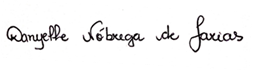 Danyelle Nóbrega de Farias